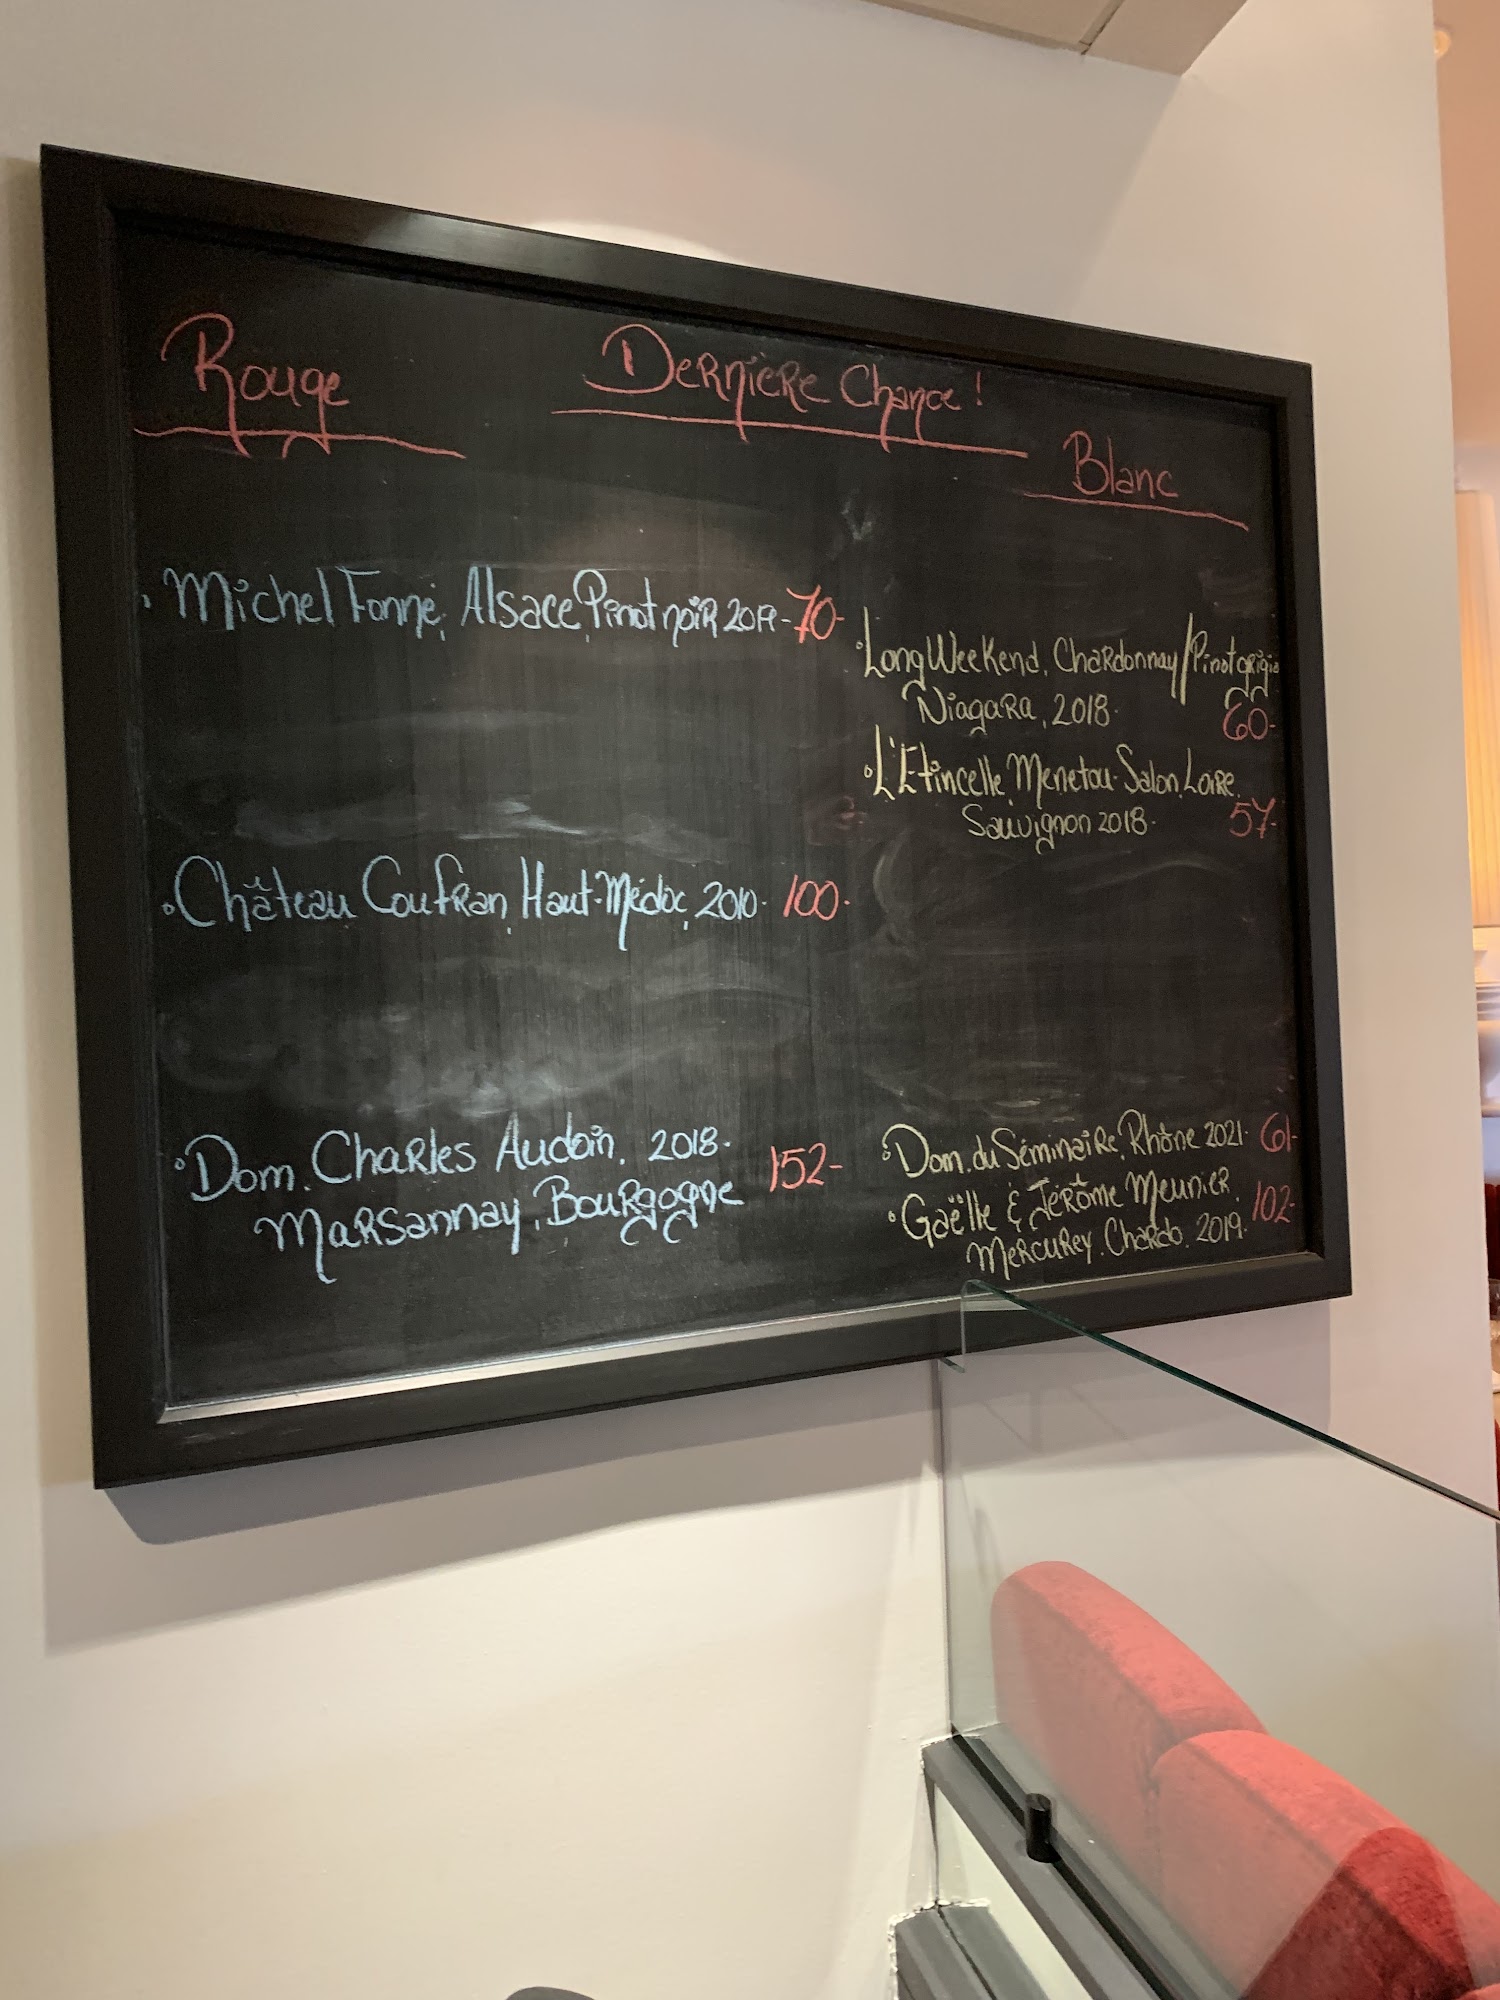 Rouge
Dernière Chance !
Blanc
Michel Fonné, Alsace, Pinot noir 2019 - 70-
Château Coufran, Haut-Médoc, 2010 - 100-
Dom. Charles Audoin, 2018 - 152-
Marsannay, Bourgogne
Long Weekend, Chardonnay/Pinot grigio
Niagara, 2018 - 60-
L'Etincelle, Menetou-Salon, Loire,
Sauvignon 2018 - 57-
Dom. du Séminaire, Rhône 2021 - 61-
Gaëlle & Jérôme Meunier, 102-
Mercurey, Chardo. 2019 -